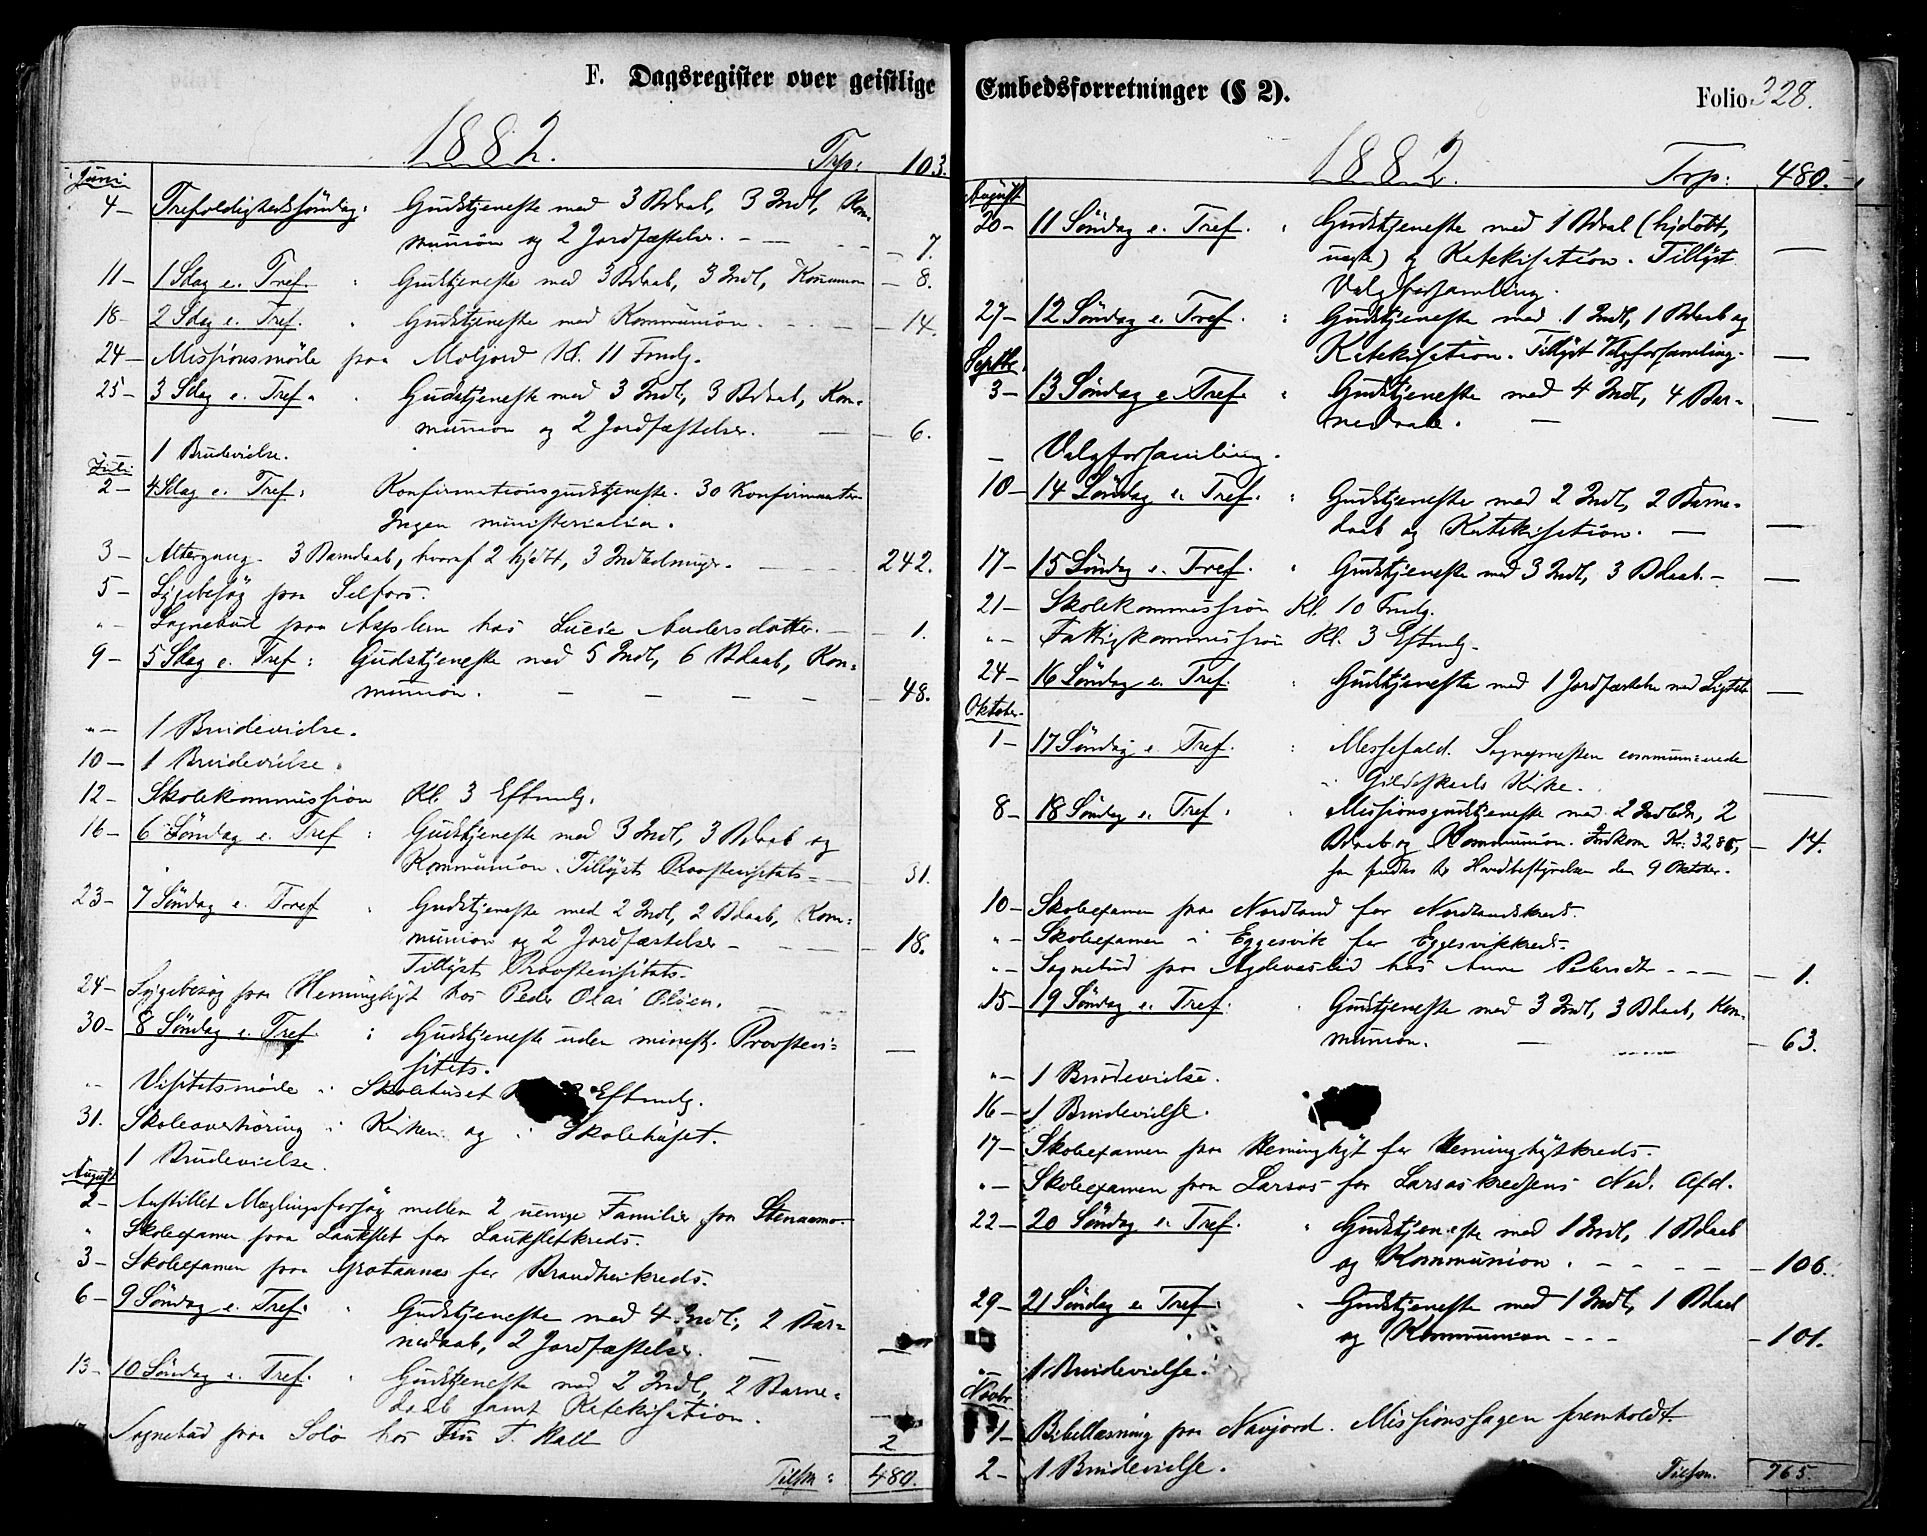 F. Dagsregister over geistlige
1882.
Trp: 103.
Juni
4 – Trefoldighedssöndag: Gudstjeneste med 3 Bdaab, 3 Indl, Kom-
munion og 2 Jordfæstelser. – 7.
11 – 1 Sdag e. Tref. Gudstjeneste med 3 Bdaab, 3 Indl, Kommunion – 8.
18 – 2 Sdag e. Tref. Gudstjeneste med Kommunion. – 14.
24 – Missionsmöde paa Moljord Kl. 11 Fmdg.
25 – 3 Sdag e. Tref. Gudstjeneste med 3 Indl, 3 Bdaab, Kom-
munion og 2 Jordfæstelser. – 6.
1 Brudevielse.
Juli
2 – 4 Sdag e. Tref: Konfirmationsgudstjeneste. 30 Konfirmanter
Ingen ministerialia.
3 – Altergang. 3 Barndaab, hvoraf 2 hjdöbt, 3 Indledninger. – 242.
5 – Sygebesög paa Selfors.
"– Sognebud paa hos Lucie Andersdatter. – 1.
9 – 5 Sdag e. Tref: Gudstjeneste med 5 Indl, 6 Bdaab, Kom-
munion. – 48.
"– 1 Brudevielse.
10 – 1 Brudevielse.
12 – Skolekommission Kl. 3 Eftmdg.
16 – 6 Söndag e. Tref: Gudstjeneste med 3 Indl, 3 Bdaab og
Kommunion. Tillyst Provstevisitats – 31.
23 – 7 Söndag e. Tref Gudstjeneste med 2 Indl, 2 Bdaab, Kom-
munion og 2 Jordfæstelser – 18.
Tillyst Provstevisitats.
24 – Sygebesög paa Heminghyt hos Peder Olai Olsen.
30 – 8 Söndag e. Tref: Gudstjeneste uden minist. Provstevi-
sitats. –
"– Visitatsmöde i Skolehuset Eftmdg.
31. Skoleoverhöring i Kirken og i Skolehuset.
1 Brudevielse.
August
2 – Anstillet Mæglingsforsög mellem 2 uenige Familier fra
" Skoleexamen paa Laukslet for Lauksletkreds.
3 – Skoleexamen paa Grotaanæs for kreds.
6 – 9 Söndag e. Tref: Gudstjeneste med 4 Indl, 2 Bar-
nedaab, 2 Jordfæstelser. –
13 – 10 Söndag e. Tref: Gudstjeneste med 2 Indl, 2 Barne-
daab samt Katekisation. –
Sognebud paa hos T. 2
Tilsm: 480.
Embedsforretninger (§ 2).
Folio 328.
1882.
Trp: 480.
August
20 – 11 Söndag e. Tref. Gudstjeneste med 1 Bdaab (hjdöbt,
uægte) og Katekisation. Tillyst –
Valgforsamling.
27 – 12 Söndag e. Tref. Gudstjeneste med 1 Indl, 1 Bdaab og
Katekisation. Tillyst Valgforsamling. –
Septbr.
3 – 13 Söndag e. Tref. Gudstjeneste med 4 Indl, 4 Bar-
nedaab. –
– Valgforsamling.
10 – 14 Söndag e. Tref. Gudstjeneste med 2 Indl, 2 Barne-
daab og Katekisation. –
17 – 15 Söndag e. Tref. Gudstjeneste med 3 Indl, 3 Bdaab. –
21 – Skolekommission Kl. 10 Fmdg.
"– Fattigkommission Kl. 3 Eftmdg.
24 – 16 Söndag e. Tref. Gudstjeneste med 1 Jordfæstelse med Ligtale –
Oktober.
1 – 17 Söndag e. Tref. Messefald. Sognepresten communicerede
i Gildeskaals Kirke. –
8 – 18 Söndag e. Tref. Missionsgudstjeneste med 2 Indledn, 2
Bdaab og Kommunion. Indkom Kr. 32,85, – 14.
som sendtes til Hovedbestyrelsen den 9 Oktober.
10 – Skoleexamen paa Nordland for Nordlandskreds.
"– Skoleexamen i Eggesvik for Eggesvikkreds.
"– Sognebud paa hos Anne Pedersdt – 1.
15 – 19 Söndag e. Tref. Gudstjeneste med 3 Indl, 3 Bdaab, Kom-
munion. – 63.
"– 1 Brudevielse.
16 – 1 Brudevielse.
17 – Skoleexamen paa Heminghyt for Heminghytkreds.
"– Skoleexamen paa Larsos for Larsoskredsens Ned. Afd.
22 – 20 Söndag e. Tref. Gudstjeneste med 1 Indl, 1 Bdaab
og Kommunion. – 106.
29 – 21 Söndag e. Tref. Gudstjeneste med 1 Indl, 1 Bdaab
og Kommunion – 101.
"– 1 Brudevielse.
Novbr
1 – Bibellæsning paa Navjord. Missionssagen fremholdt.
2 – 1 Brudevielse.
Tilsm. 765.